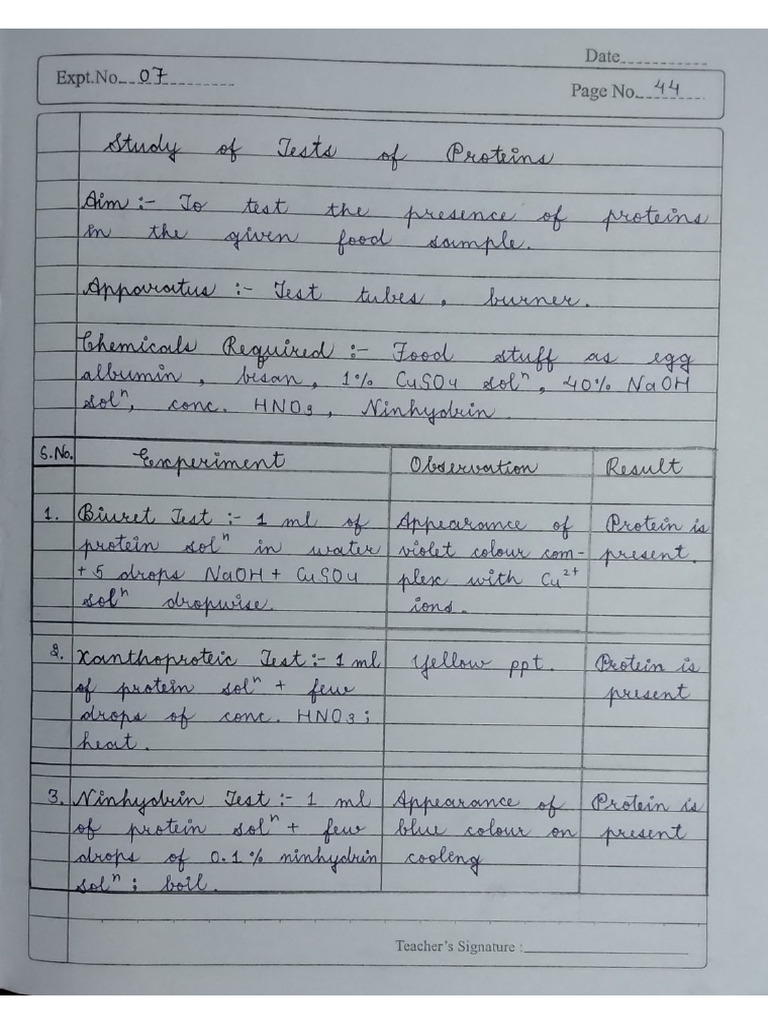 Date
Expt.No. 07
Page No. 44
Study of Tests of Proteins
Aim :- To test the presence of proteins
in the given food sample.
Apparatus :- Test tubes, burner.
Chemicals Required :- Food stuff as egg
albumin, besan, 1% CuSO4 solⁿ, 40% NaOH
solⁿ, conc. HNO3, Ninhydrin
S.No. Experiment Observation Result
1. Biuret Test :- 1 ml of Appearance of Protein is
protein solⁿ in water violet colour com- present.
+ 5 drops NaOH + CuSO4 plex with Cu²⁺
solⁿ dropwise. ions.
2. Xanthoproteic Test :- 1 ml Yellow ppt. Protein is
of protein solⁿ + few present
drops of conc. HNO3;
heat.
3. Ninhydrin Test :- 1 ml Appearance of Protein is
of protein solⁿ + few blue colour on present
drops of 0.1% ninhydrin cooleng
solⁿ; boil.
Teacher's Signature :